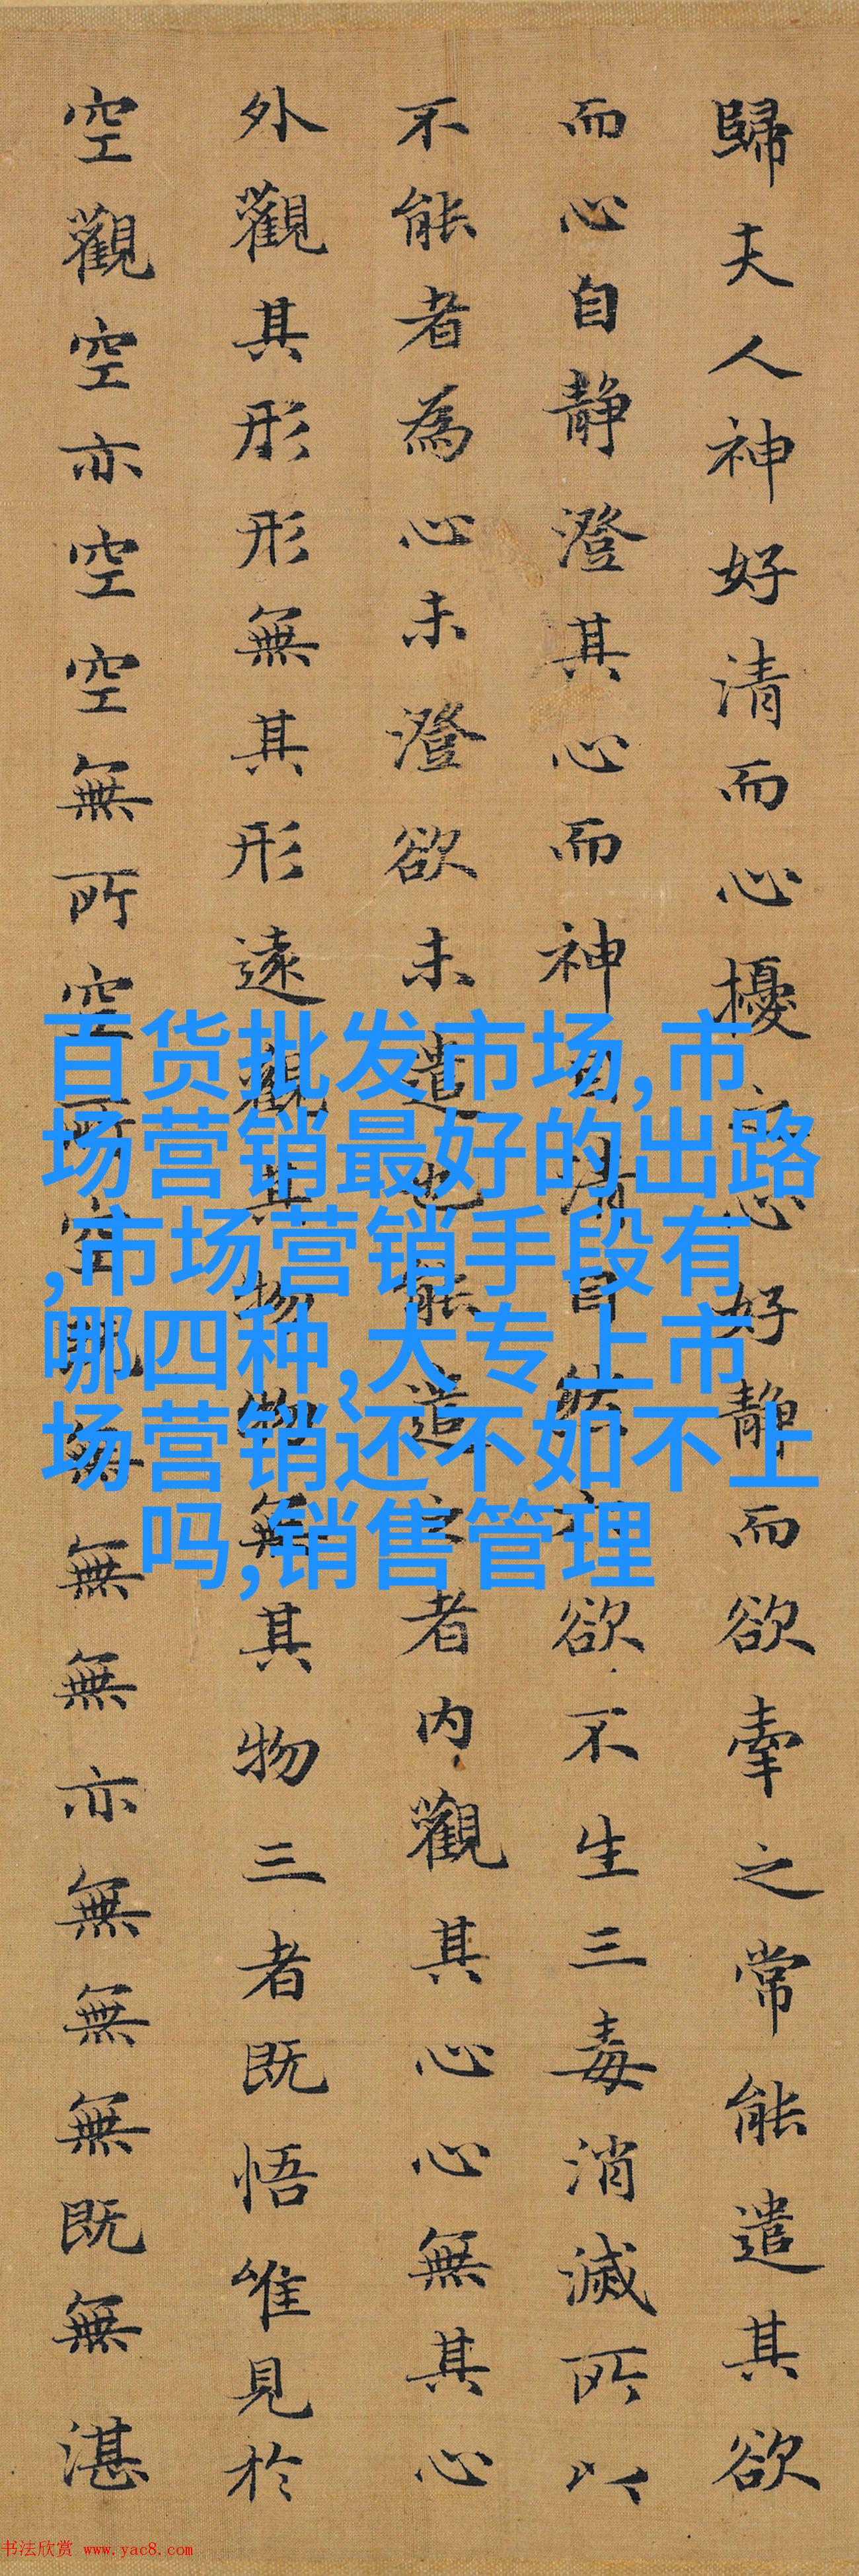 歸夫人神好清而心擾之心好靜而欲牽之常能遣其欲
而心自靜澄其心而神自清自然六欲不生三毒消滅所以
不能者為心未澄欲未遣也能遣之者內觀其心心無其心
外觀其形形無其形遠觀其物物無其物三者既悟唯見於
空觀空亦空空無所空所空既無無無亦無無無既無湛
百货批发市场,市
场营销最好的出路
,市场营销手段有
哪四种,大专上市
场营销还不如不上
吗,销售管理
书法欣赏 www.yac8.com